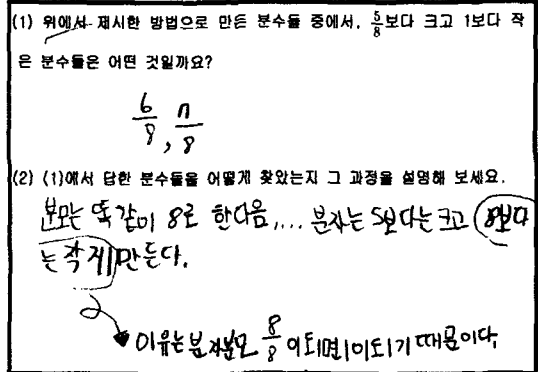 (1) 위에서 제시한 방법으로 만든 분수들 중에서, 5/8보다 크고 1보다 작
은 분수들은 어떤 것일까요?
6/8, 7/8
(2) (1)에서 답한 분수들을 어떻게 찾았는지 그 과정을 설명해 보세요.
분모는 똑같이 8로 한다음,... 분자는 5보다는 크고 8보다
는 작게 만든다.
이유는 8/8 이되면 1이되기 때문이다.